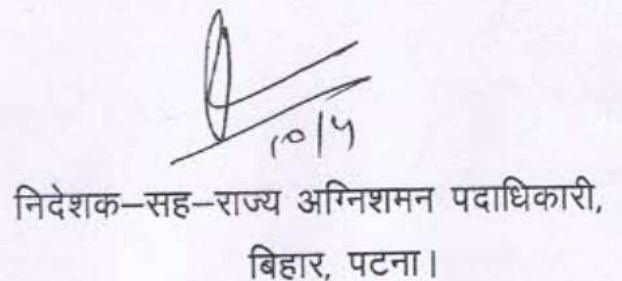 १०/५
निदेशक–सह–राज्य अग्निशमन पदाधिकारी,
बिहार, पटना।